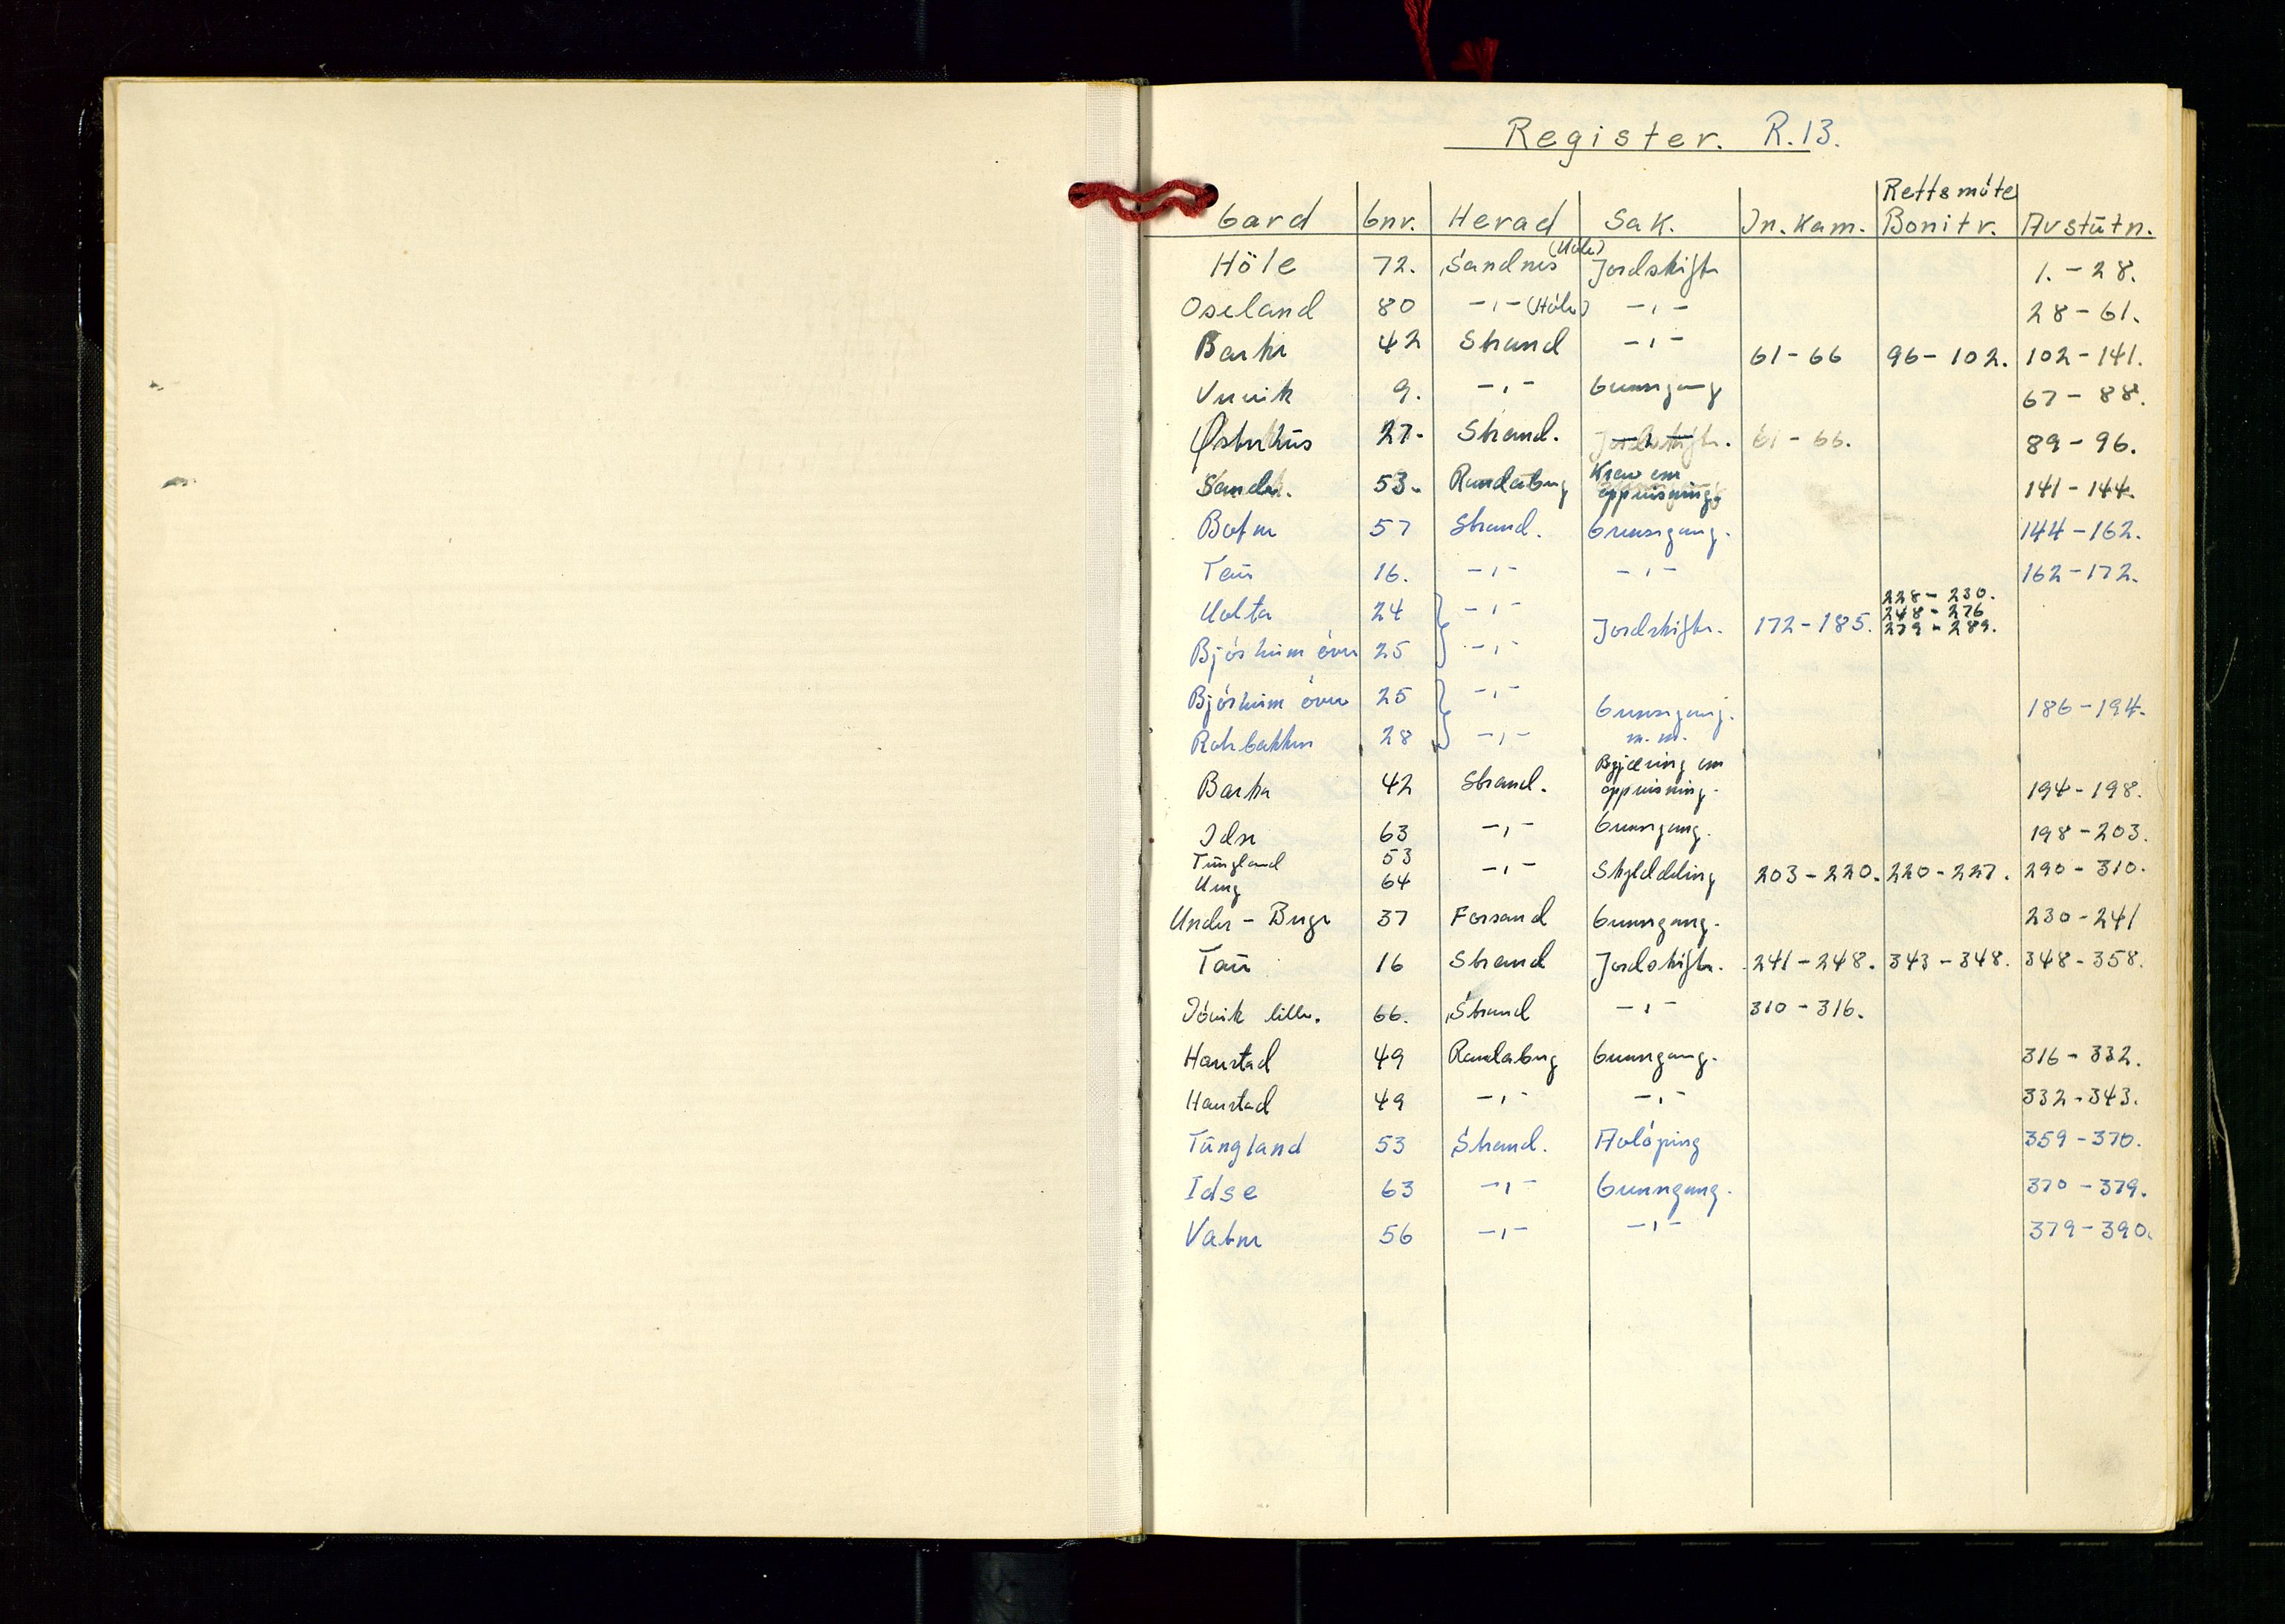 Register. R.13.
Gard Gnr. Herad Sak. In.Kom. Rettsmöte Bonitr. Avslutn.
Höle 72. Sandnes (Höle) Jordskifte 1.-28.
Oseland 80 -"- (Höle) -"- 28-61.
Barka 42 Strand -"- 61-66 96-102. 102-141.
9. -"- Grensgang 67-88.
Østerhus 27. Strand. 61-66. 89-96.
Sande. 53. Randaberg Krav om oppreisning. 141-144.
Botne 57 Strand. Grensgang. 144-162.
Tau 16. -"- -"- 162-172.
Holta 24 -"- 228-230.
248-276
Jordskifte. 172-185. 279-289.
Bjørheim övre 25 -"-
Bjørheim övre 25 -"- Grensgang. 186-194.
28 -"- m.m.
Begjæring om
Barka 42 Strand. oppreisning. 194-198.
Idse 63 -"- Grensgang. 198-203.
Tungland 53
-"- Skylddeling 203-220. 220-227. 290-310.
Heng 64
Under-Berge 37 Forsand Grensgang. 230-241
Tau 16 Strand Jordskifte. 241-248. 343-348. 348-358.
lille. 66. Strand -"- 310-316.
Harestad 49 Randaberg Grensgang. 316-332.
Harestad 49 -"- -"- 332-343.
Tungland 53 Strand. Avlöysing 359-370.
Idse 63 -"- Grensgang. 370-379.
Vatne 56 -"- -"- 379-390.